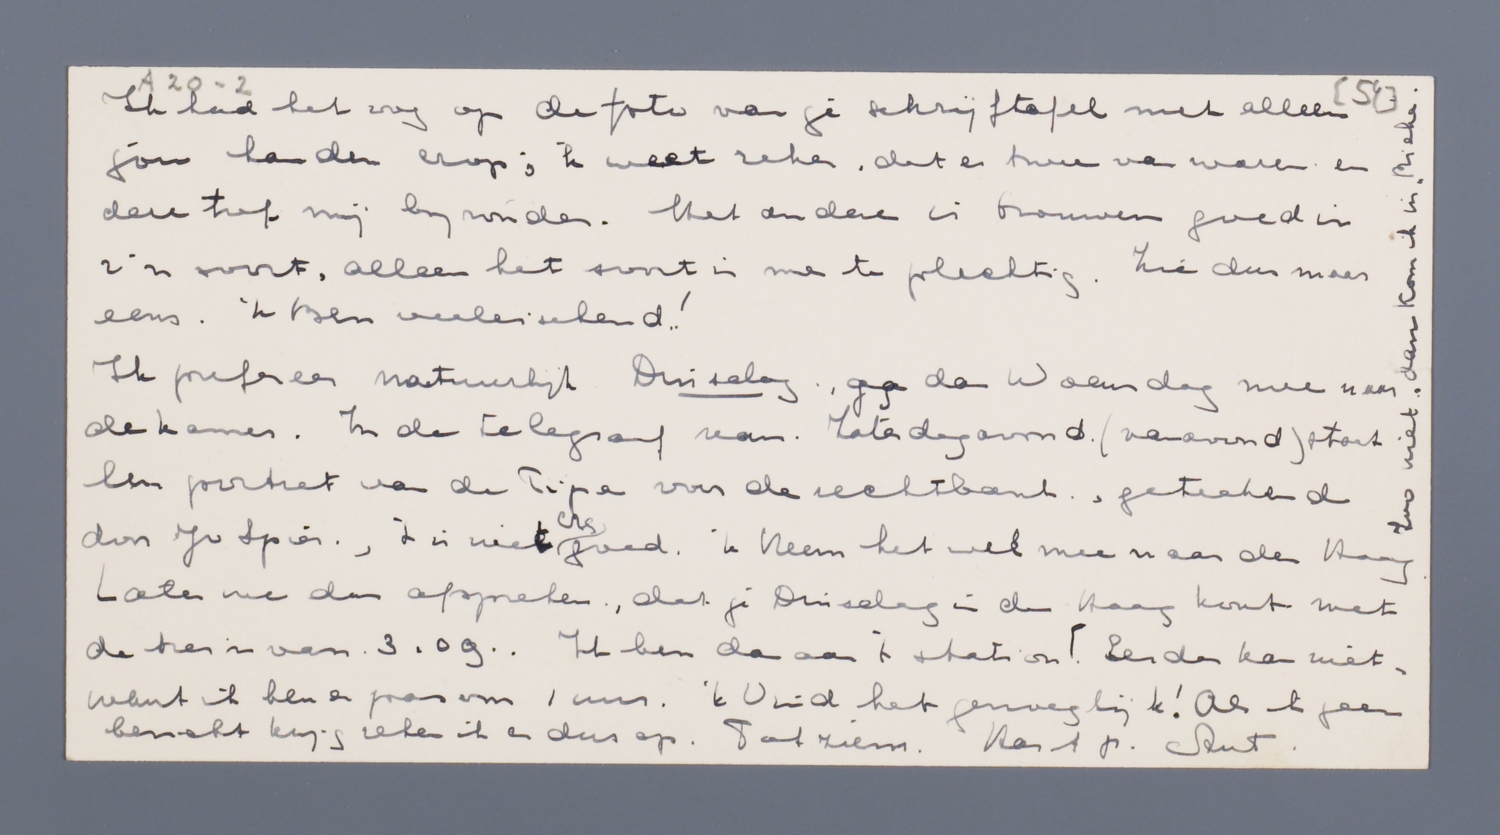 A 20-2
[54]
Ik had het oog op de foto van je schrijftafel met alleen
jou handen erop; 'k weet zeker, dat er twee van waren en
deze trof mij bijzonder. Het andere is trouwens goed in
z'n soort, alleen het soort is me te plechtig. Zie dus maar
eens. 'k Ben veeleischend!
Ik prefereer natuurlijk Dinsdag, ga dan Woensdag mee naar
de kamer. In de telegraaf van Zaterdagavond. (vanavond) staat
een portret van de Tipe voor de rechtbank., geteekend
door Jo Spier., 't is niet erg goed. 'k Neem het wel mee naar den Haag
Laten we dus afspreken., dat je Dinsdag in den Haag komt met
de trein van 3.09.. Ik ben dan aan 't station! Eerder kan niet,
want ik ben er pas om 1 uur. 'k Vind het genoegelijk! Als ik geen
bericht krijg reken ik er dus op. Tot ziens. Hart. gr.
Zoo niet. dan kom ik in